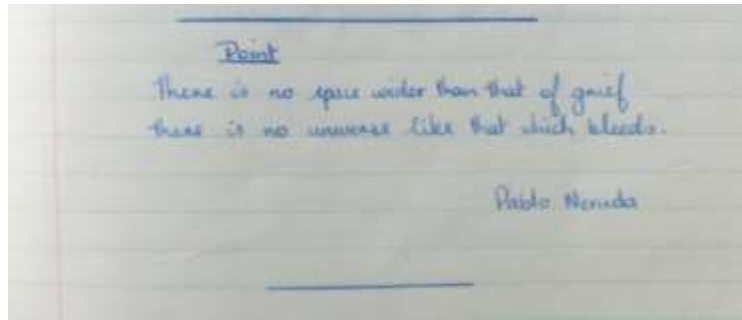 Point
There is no space wider than that of grief
there is no universe like that which bleeds.
Pablo Neruda